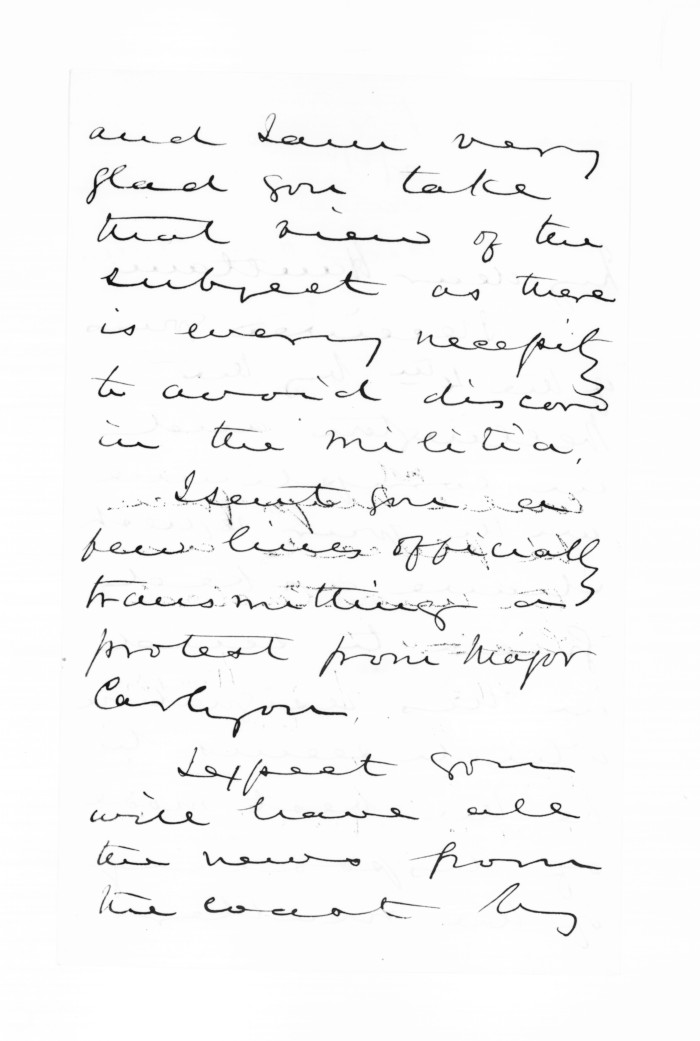 and I am very
glad you take
that view of the
subject as there
is every necessity
to avoid discord
in the militia.
I sent you a
few lines officially
transmitting a
protest from Major
Carlyon.
I expect you
will have all
the news from
the coast by